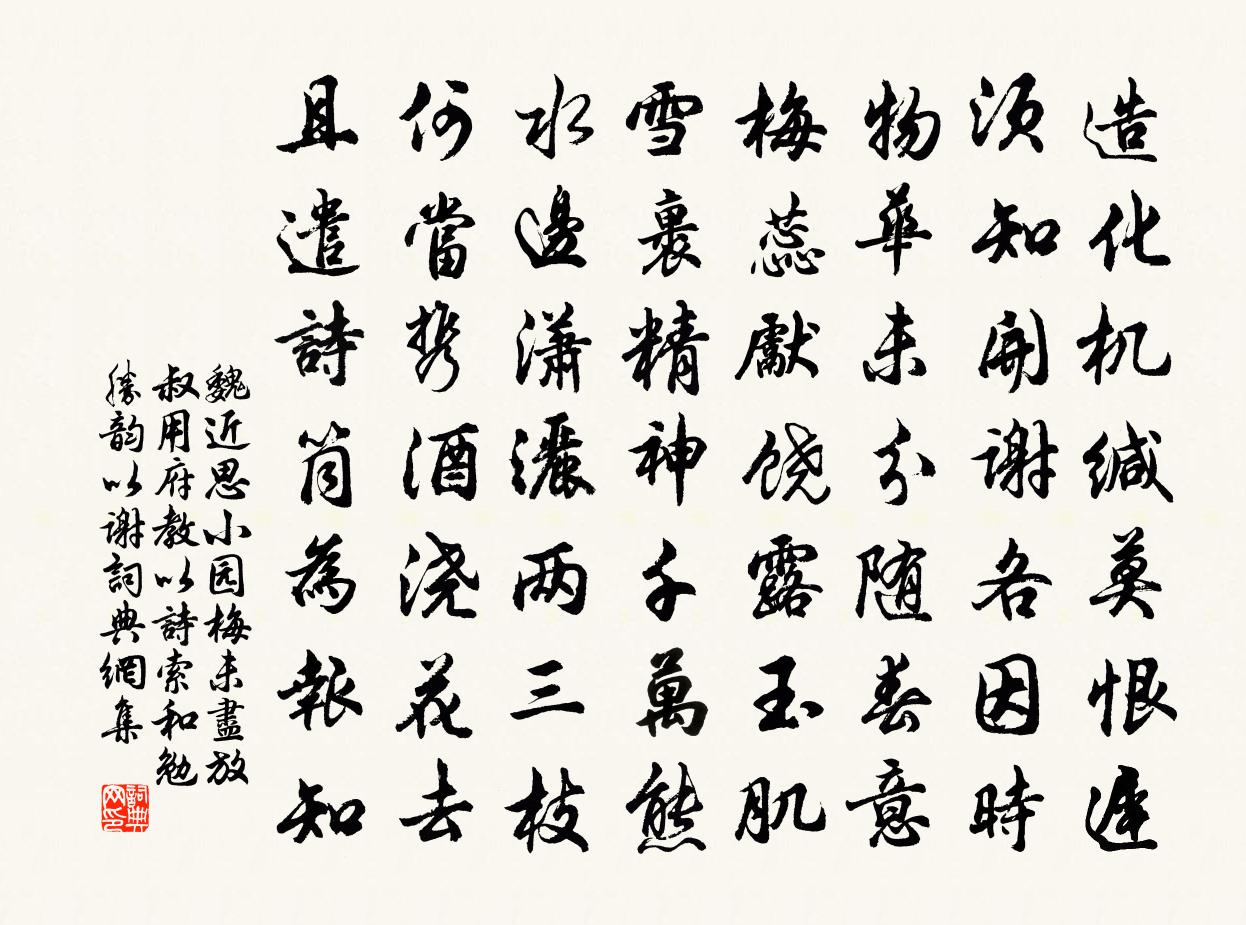 造化机缄莫恨遲
須知開謝各因時
物華未分随春意
梅蕊獻饶露玉肌
雪裏精神千萬態
水邊瀟灑两三枝
何當携酒浇花去
且遣詩筒為報知
魏近思小园梅未盡放
叔用府教以詩索和勉
勝韵以谢詞典網集
詞典网印